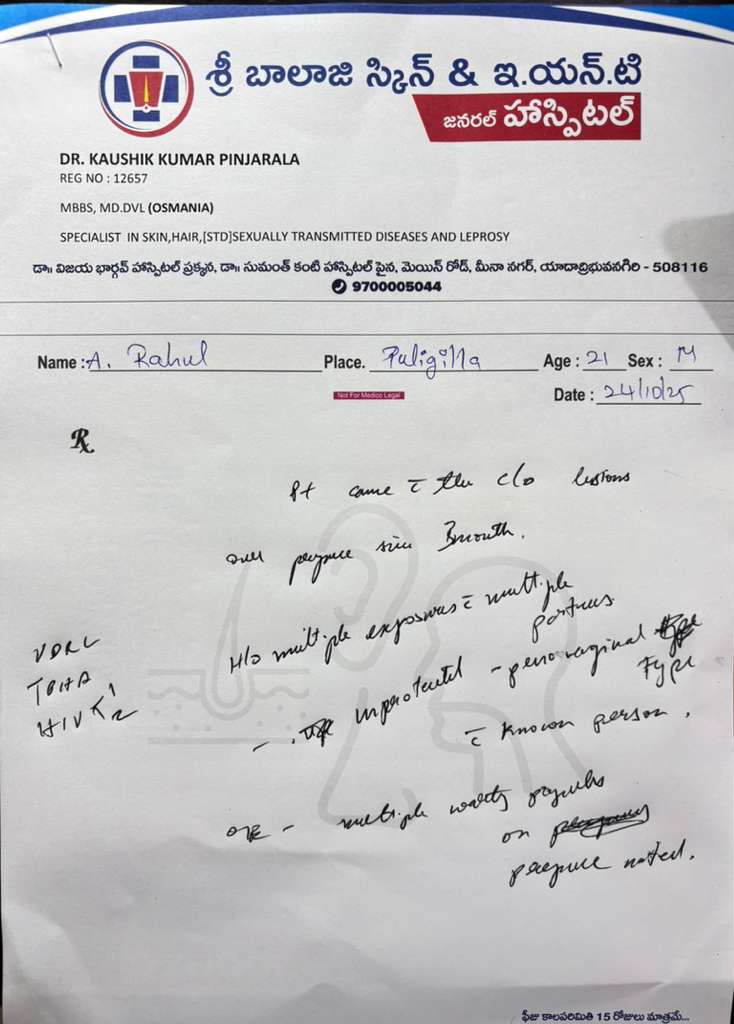 శ్రీ బాలాజి స్కిన్ & ఇ.యన్.టి
జనరల్ హాస్పిటల్
DR. KAUSHIK KUMAR PINJARALA
REG NO : 12657
MBBS, MD.DVL (OSMANIA)
SPECIALIST IN SKIN,HAIR,[STD]SEXUALLY TRANSMITTED DISEASES AND LEPROSY
డా॥ విజయ భార్గవ్ హాస్పిటల్ ప్రక్కన, డా॥ సుమంత్ కంటి హాస్పిటల్ పైన, మెయిన్ రోడ్, మీనా నగర్, యాదాద్రిభువనగిరి - 508116
9700005044
Name : A. Rahul Place. Puligilla Age : 21 Sex : M
Not For Medico Legal
Date : 24/10/25
℞
Pt came c̄ the c/o lesions
over prepuce since 3month.
H/o multiple exposures c̄ multiple
partners
- unprotected - penovaginal
Type
c̄ known person.
VDRL
TPHA
HIV 1
2
O/E - multiple warty papules
on
prepuce noted.
ఫీజు కాలపరిమితి 15 రోజులు మాత్రమే...